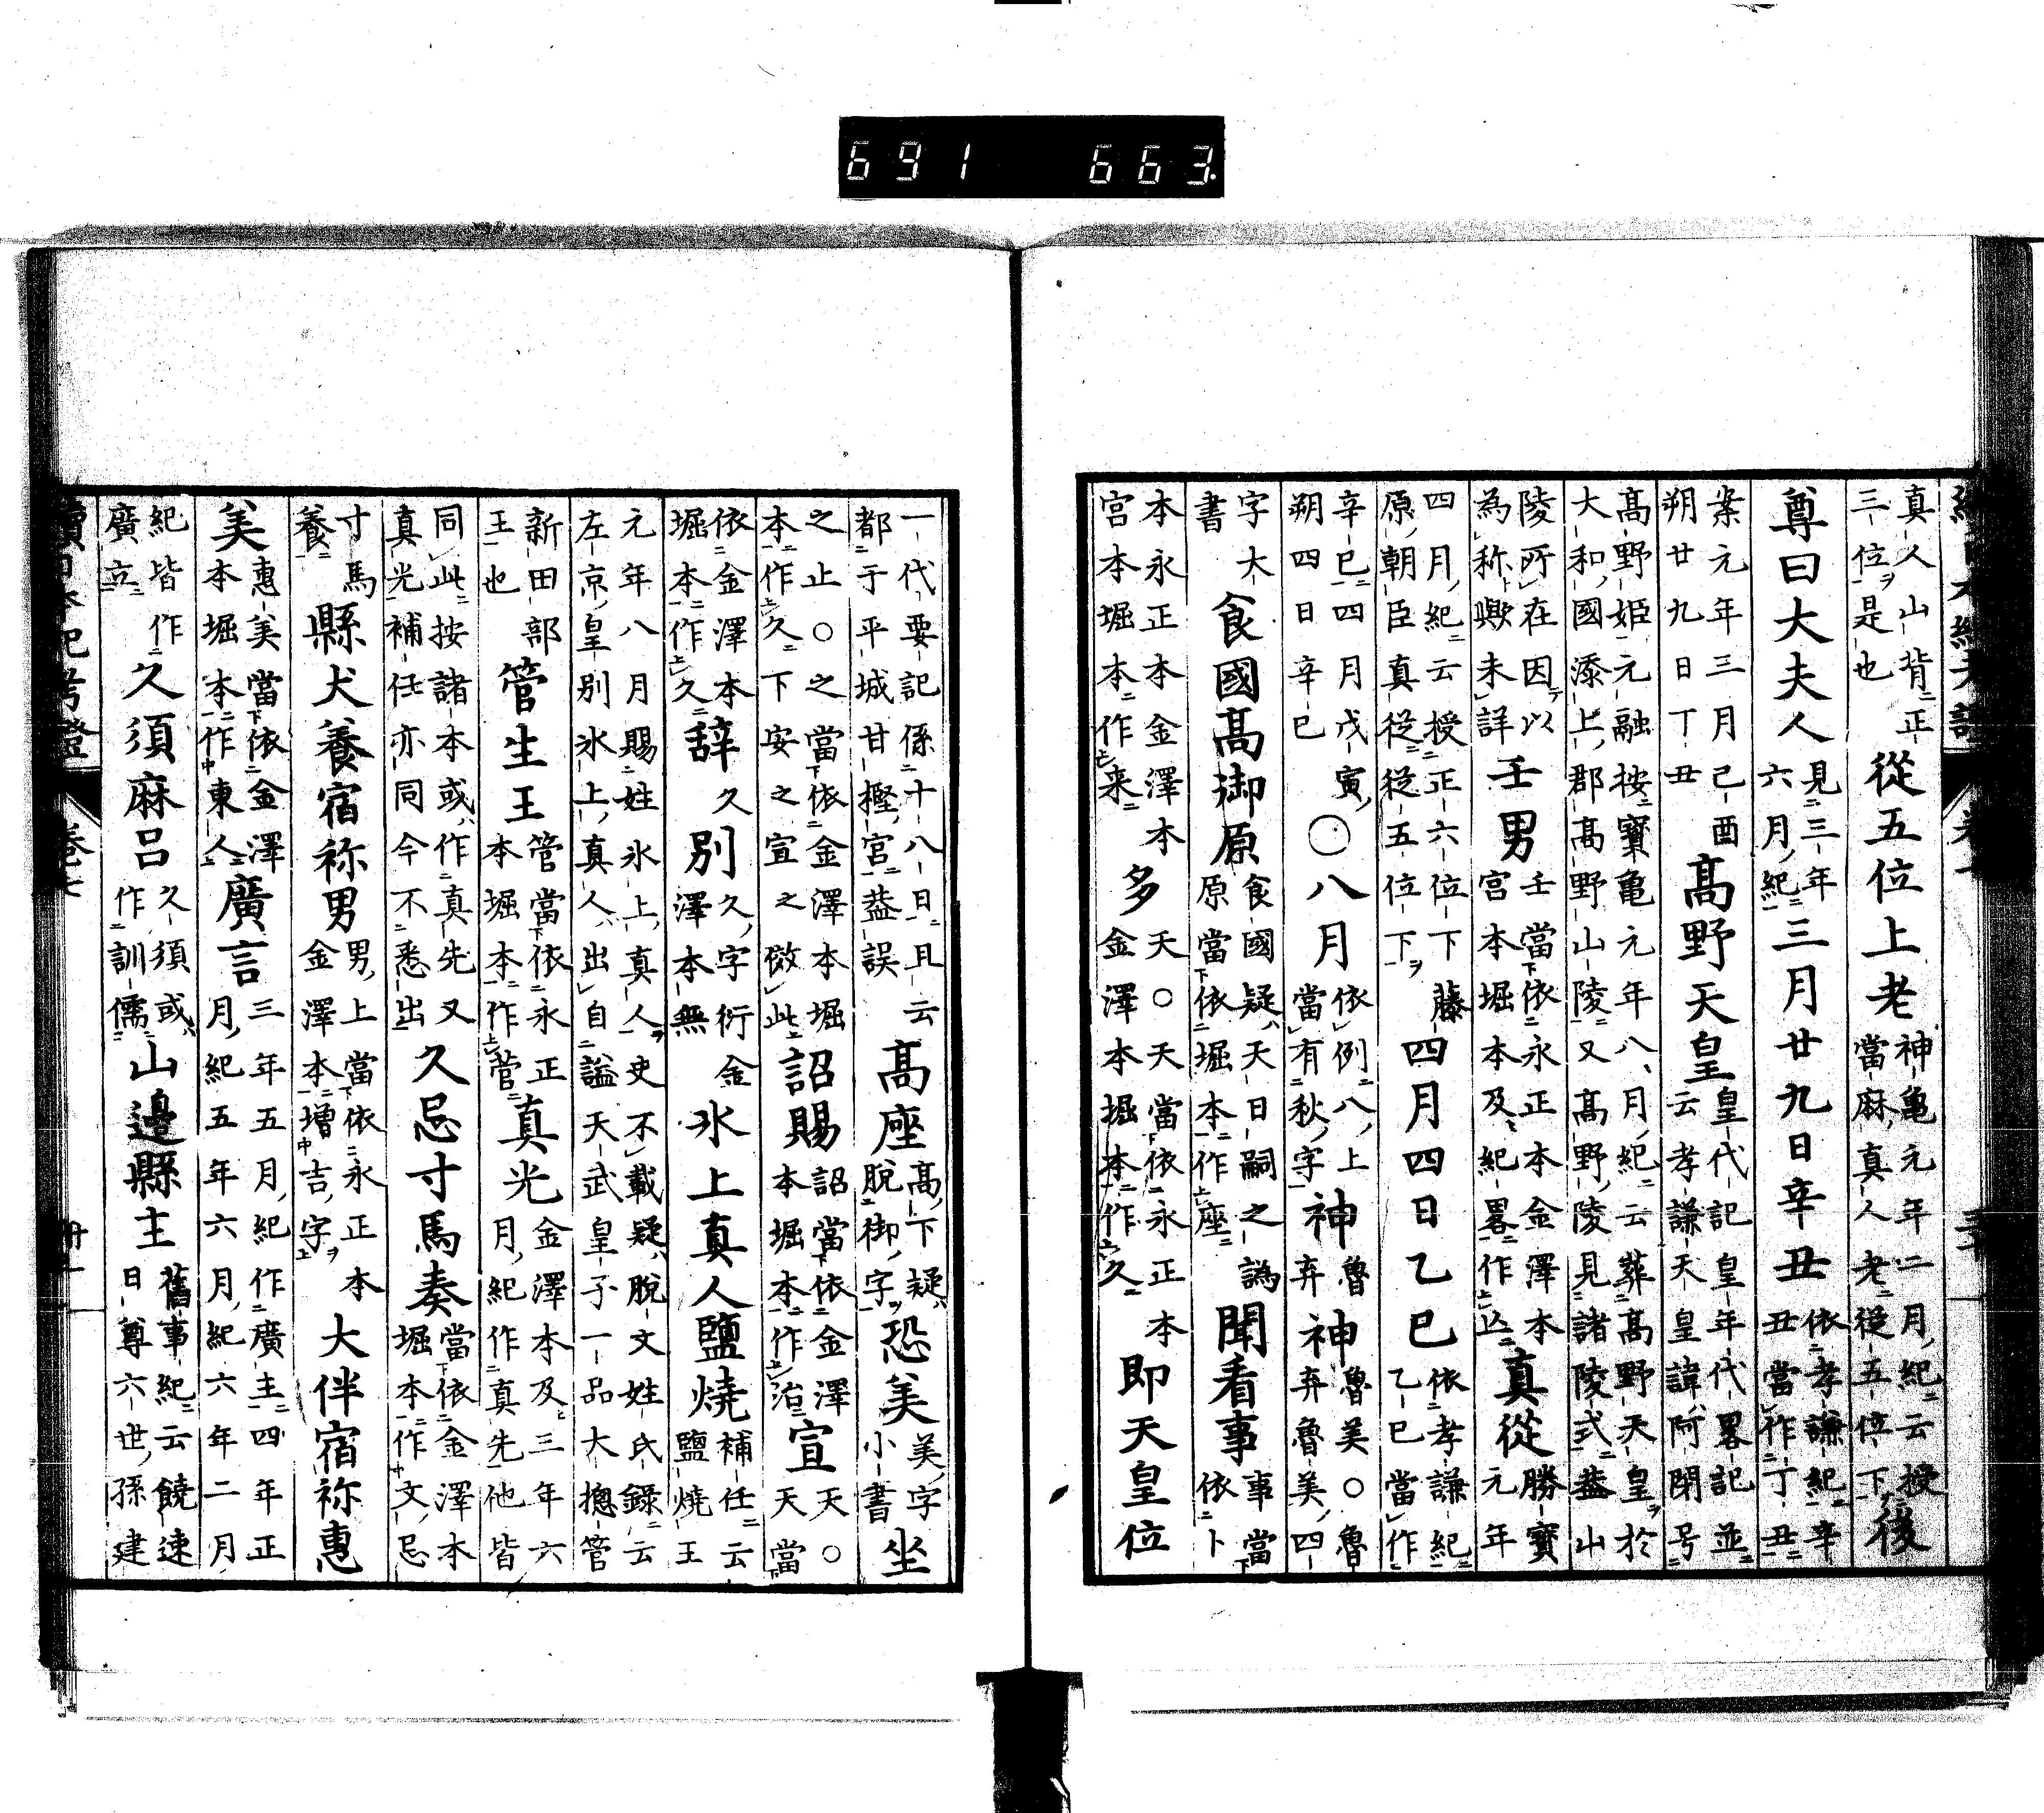 691 663
真人山背正從五位上老神亀元年二月紀云授後
三位是也當麻真人老從五位下
尊曰大夫人見三年六月紀三月廿九日辛丑依孝謙紀辛丑當作丁丑
案元年三月己酉朔廿九日丁丑高野天皇皇代記皇年代畧記並云孝謙天皇諱阿閇号
高野姫元融按寶亀元年八月紀云葬高野天皇於
大和國添上郡高野山陵又高野陵見諸陵式葢山
陵所在因以為称歟未詳壬男壬當依永正本金澤本宮本堀本及紀畧作亾真從勝寶元年
四月紀云授正六位下藤原朝臣真從從五位下四月四日乙巳依孝謙紀乙巳當作
辛巳四月戊寅朔四日辛巳〇八月依例八上當有秋字神魯弃神魯美〇魯弃魯美四
字大書食國高御原食國疑天日嗣之譌原當依堀本作座聞看事事當依卜
本永正本金澤本宮本堀本作来多天〇天當依永正本金澤本堀本作久即天皇位
一代要記係十八日且云都于平城甘樫宮葢誤高座高下疑脫御字恐美美字小書坐
之止〇之當依金澤本堀本作久下安之宣之倣此詔賜詔當依金澤本堀本作治宣天〇天當
依金澤本堀本作久辞久別久字衍金澤本無氷上真人鹽燒補任云鹽燒王
元年八月賜姓氷上真人吏不載疑脫文姓氏録云
左京皇別氷上真人出自謚天武皇子一品大摠管
新田部王也管生王管當依永正本堀本作菅真光金澤本及三年六月紀作真先他皆
同此按諸本或作真先又真光補任亦同今不悉出久忌寸馬奏當依金澤本堀本作文忌
寸馬養縣犬養宿祢男男上當依永正本金澤本増吉字大伴宿祢惠
美惠美當依金澤本堀本作東人廣言三年五月紀作廣主四年正月紀五年六月紀六年二月
紀皆作廣立久須麻呂久須或作訓儒山邉縣主舊事紀云饒速日尊六世孫建
續日本紀考證 卷七 卅一